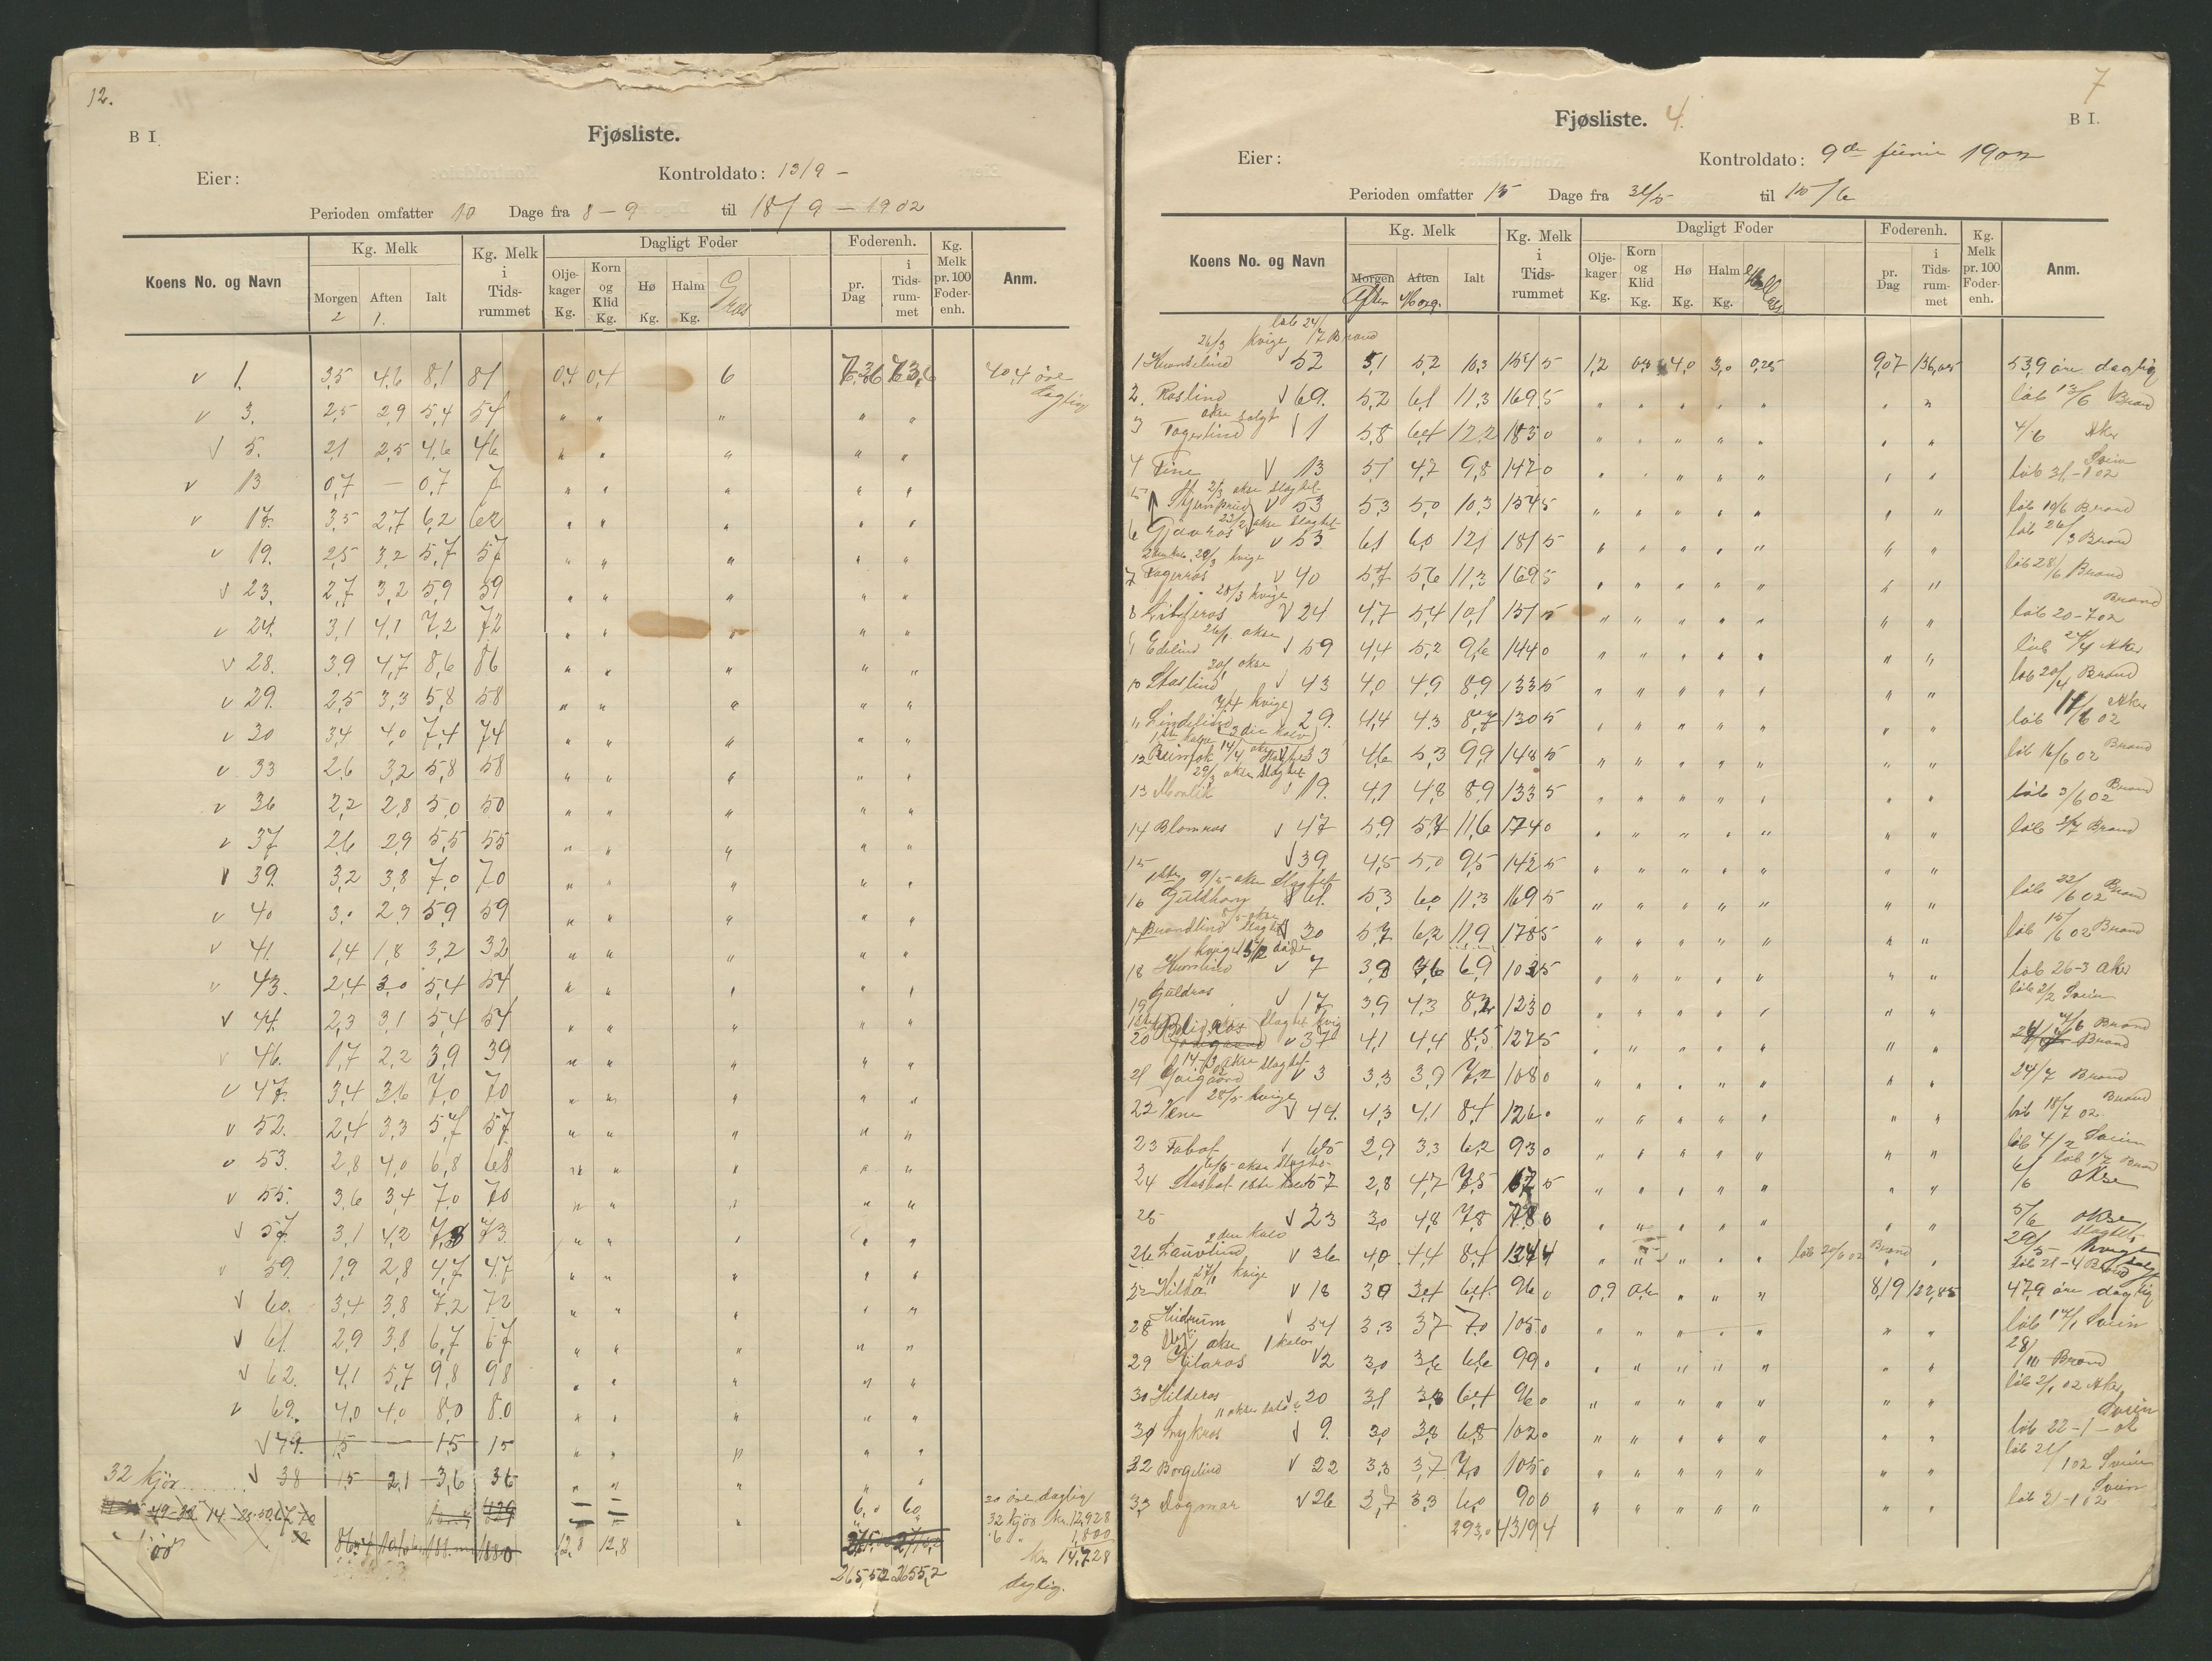 12.
B I.
Fjøsliste.
Eier:
Kontroldato: 13/9 –
Perioden omfatter 10 Dage fra 8 – 9 til 18/9 – 1902
Koens No. og Navn
Kg. Melk
Morgen Aften Ialt
2 1.
Kg. Melk i Tids-rummet
Dagligt Foder
Olje-kager Kg.
Korn og Klid Kg.
Hø Kg.
Halm Kg.
Græs
Foderenh.
pr. Dag
i Tids-rum-met
Kg. Melk pr. 100 Foder-enh.
Anm.
v 1. 3,5 4,6 8,1 81 0,4 0,4 6 7,36 73,6 40,4 øre daglig
v 3. 2,5 2,9 5,4 54 " " " " "
v 5. 2,1 2,5 4,6 46 " " " " "
v 13 0,7 — 0,7 7 " " " " "
v 17. 3,5 2,7 6,2 62 " " " " "
v 19. 2,5 3,2 5,7 57 " " " " "
v 23. 2,7 3,2 5,9 59 " " " " "
v 24. 3,1 4,1 7,2 72 " " " " "
v 28. 3,9 4,7 8,6 86 " " " " "
v 29. 2,5 3,3 5,8 58 " " " " "
v 30 3,4 4,0 7,4 74 " " " " "
v 33 2,6 3,2 5,8 58 " " " " "
v 36 2,2 2,8 5,0 50 " " " " "
v 37 2,6 2,9 5,5 55 " " " " "
v 39. 3,2 3,8 7,0 70 " " " " "
v 40 3,0 2,9 5,9 59 " " " " "
v 41. 1,4 1,8 3,2 32 " " " " "
v 43. 2,4 3,0 5,4 54 " " " " "
v 44. 2,3 3,1 5,4 54 " " " " "
v 46. 1,7 2,2 3,9 39 " " " " "
v 47. 3,4 3,6 7,0 70 " " " " "
v 52. 2,4 3,3 5,7 57 " " " " "
v 53. 2,8 4,0 6,8 68 " " " " "
v 55. 3,6 3,4 7,0 70 " " " " "
v 57. 3,1 4,2 7,3 73. " " " " "
v 59. 1,9 2,8 4,7 47 " " " " "
v 60. 3,4 3,8 7,2 72 " " " " "
v 61. 2,9 3,8 6,7 67 " " " " "
v 62. 4,1 5,7 9,8 98 " " " " "
v 69. 4,0 4,0 8,0 80 " " " " "
v 79. 1,5 — 1,5 15 " " " " "
32 kjør v 38 1,5 2,1 3,6 36 " " " "
6,0 60, 30 øre daglig
32 kjør kr. 12,928
6 " 1,800
12,8 12,8 kr 14,728
265,52 2655,2 daglig.
7
Fjøsliste. 4.
B I.
Eier:
Kontroldato: 9de juni 1902
Perioden omfatter 15 Dage fra 31/5 til 15/6
Koens No. og Navn
Kg. Melk
Morgen Aften Ialt
Aften Morg.
Kg. Melk i Tids-rummet
Dagligt Foder
Olje-kager Kg.
Korn og Klid Kg.
Hø Kg.
Halm Kg.
Foderenh.
pr. Dag
i Tids-rum-met
Kg. Melk pr. 100 Foder-enh.
Anm.
løb 24/
26/3 kvige 17 Brand
1 v 52 5,1 5,2 10,3 154 5 1,2 4,0 3,0 0,25 9,07 136,05 53,9 øre daglig
2. Roslind v 69. 5,2 6,1 11,3 169 5 " " " " " " " løb 13/6 Brand
okse solgt
3 Fagerlind 1 5,8 6,4 12,2 183 0 " " " " " " " 4/6 Aker
4 Fine v 13 5,1 4,7 9,8 147 0 " " " " " " " løb 31-1 02 Svein
2/3 okse slagtet
5 v 53 5,3 5,0 10,3 154 5 " " " " " " " løb 19/6 Brand
23/2 okse slagtet
6 v 55 6,1 6,0 12,1 181 5 " " " " " " " løb 26/3 Brand
kvige
7 Fagerros v 40 5,7 5,6 11,3 169 5 " " " " " " " løb 28/6 Brand
28/3 kvige
8 v 24 4,7 5,4 10,1 151 5 " " " " " " " løb 20-7 02 Brand
26/1 okse
9 Edelind v 59 4,4 5,2 9,6 144 0 " " " " " " " løb 24/4 Aker
30/1 okse
10 Staslind v 43 4,0 4,9 8,9 133 5 " " " " " " " løb 20/4 Brand
7/4 kvige
11 Lindelind 29. 4,4 4,3 8,7 130 5 " " " " " " " løb 17/6 02 Aker
12 33 4,6 5,3 9,9 148 5 " " " " " " " løb 16/6 02 Brand
29/3 okse slagtet
13 v 19. 4,1 4,8 8,9 133 5 " " " " " " " løb 3/6 02 Brand
14 Blomros v 47 5,9 5,7 11,6 174 0 " " " " " " " løb 2/7 Brand
15 v 39. 4,5 5,0 9,5 142 5 " " " " " " "
9/5 okse slagtet
16 Guldhorn 61. 5,3 6,0 11,3 169 5 " " " " " " " løb 22/6 02 Brand
17 Brandlind 30 5,7 6,2 11,9 178 5 " " " " " " " løb 15/6 02 Brand
18 v 7 3,3 3,6 6,9 103 5 " " " " " " " løb 26-3 Aker
19 Guldros v 17 3,9 4,3 8,2 123 0 " " " " " " " løb 2/2 Svein
20 v 37 4,1 4,4 8,5 127 5 " " " " " " " Brand
14/3 okse slagtet
21 v 3 3,3 3,9 7,2 108 0 " " " " " " " 24/7 Brand
28/5 kvige
22 Vene v 44. 4,3 4,1 8,4 126 0 " " " " " " " løb 18/7 02 Brand
23 65 2,9 3,3 6,2 93 0 " " " " " " " løb 4/2 Svein
24 57 2,8 4,7 7,5 67 5 " " " " " " " 6/6 okse
25 v 23 3,0 4,8 7,8 78 0 " " " " " " " 5/6 okse slagtet
2den kalv
26 Lauvlind v 36 4,0 4,4 8,4 134 4 " " " " " løb 20/6 02 Brand " "
27/1 kvige løb 21-4 Brand
27 Hilda v 18 3,0 3,4 6,4 96 0 0,9 0,6 " " " 8,19 122,85 47,9 øre daglig
28 v 54 3,3 3,7 7,0 105 0 " " " " " " " løb 14/1 Svein
okse 1 kalv
29 v 2 3,0 3,6 6,6 99 0 " " " " " " " 28/11 Brand
30 Hilderos v 20 3,1 3,3 6,4 96 0 " " " " " " " løb 2/1 02 Aker
31 v 9. 3,0 3,8 6,8 102 0 " " " " " " " løb 22-1-02 Svein
32 Borgelind v 22 3,3 3,7 7,0 105 0 " " " " " " " løb 21/1 02 Svein
33 Dagmar v 26 2,7 3,3 6,0 90 0 " " " " " " " løb 21-1 02 Svein
293,0 4319 4